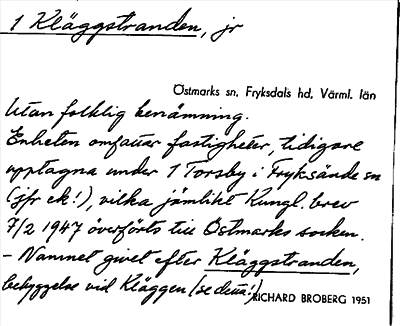 1 Kläggstranden, jr
Östmarks sn, Fryksdals hd, Värml. län
Utan folklig benämning.
Enheten omfattar fastigheter, tidigare
upptagna under 1 Torsby i Fryksände sn
(jfr ek!), vilka jämlikt Kungl. brev
7/2 1947 överförts till Östmarks socken.
– Namnet givet efter Kläggstranden,
bebyggelse vid Kläggen (se dem!).
RICHARD BROBERG 1951